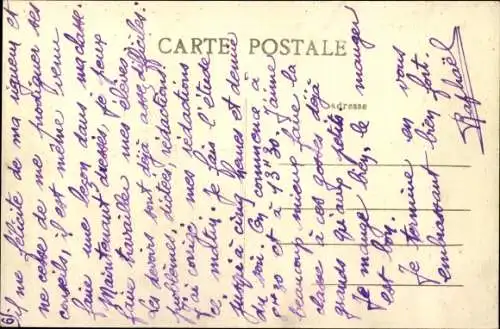 CARTE POSTALE
Adresse
6)
il me félicite de ma rigueur et
ne cesse de me prodiguer ses
conseils, il est même venu
faire une leçon dans ma classe.
Maintenant je peux
faire travailler mes élèves.
Les devoirs sont déjà assez difficiles:
problèmes, dictées, rédactions
j'ai corrigé mes rédactions
ce matin. Je fais l'étude
jusqu'à cinq heures et demie
du soir. On commence à
et à 13h30. J'aime
beaucoup mieux faire la
classe à ces gosses déjà
grands qu'aux petits
Je mange bien, le manger
est bon.
Je termine en vous
embrassant bien fort.
Raphaël